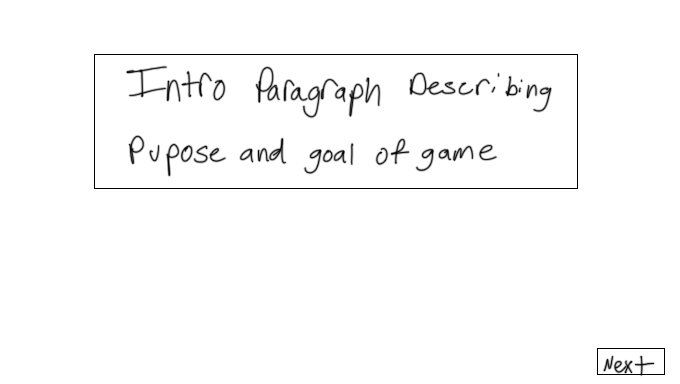 Intro Paragraph Describing
Pupose and goal of game
Next